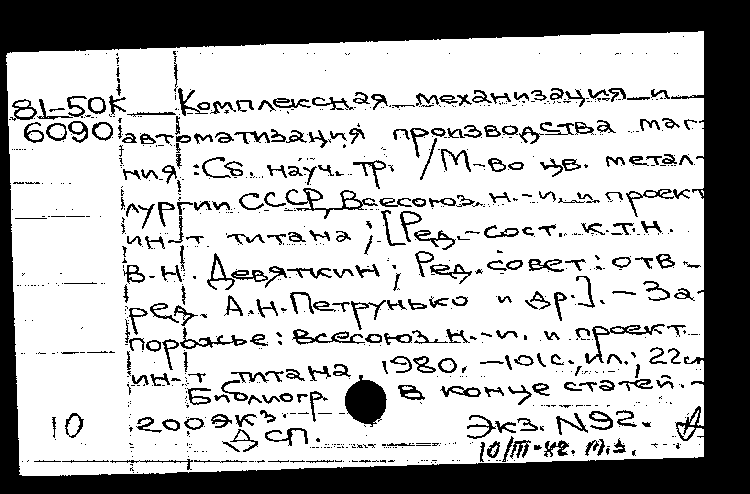 81-50К Комплексная механизация и
6090 автоматизация производства маг-
ния : Сб. науч. тр. / М-во цв. метал-
лургии СССР, Всесоюз. н.-и. и проект.
ин-т титана ; [Ред.-сост. к.т.н.
В.Н. Девяткин ; Ред. совет : отв.
ред. А.Н. Петрунько и др.]. - За-
порожье : Всесоюз. н.-и. и проект.
ин-т титана, 1980. - 101с., ил.; 22см
Библиогр. в конце статей. -
10 200 экз. Экз. N92.
ДСП. 10/III-82.